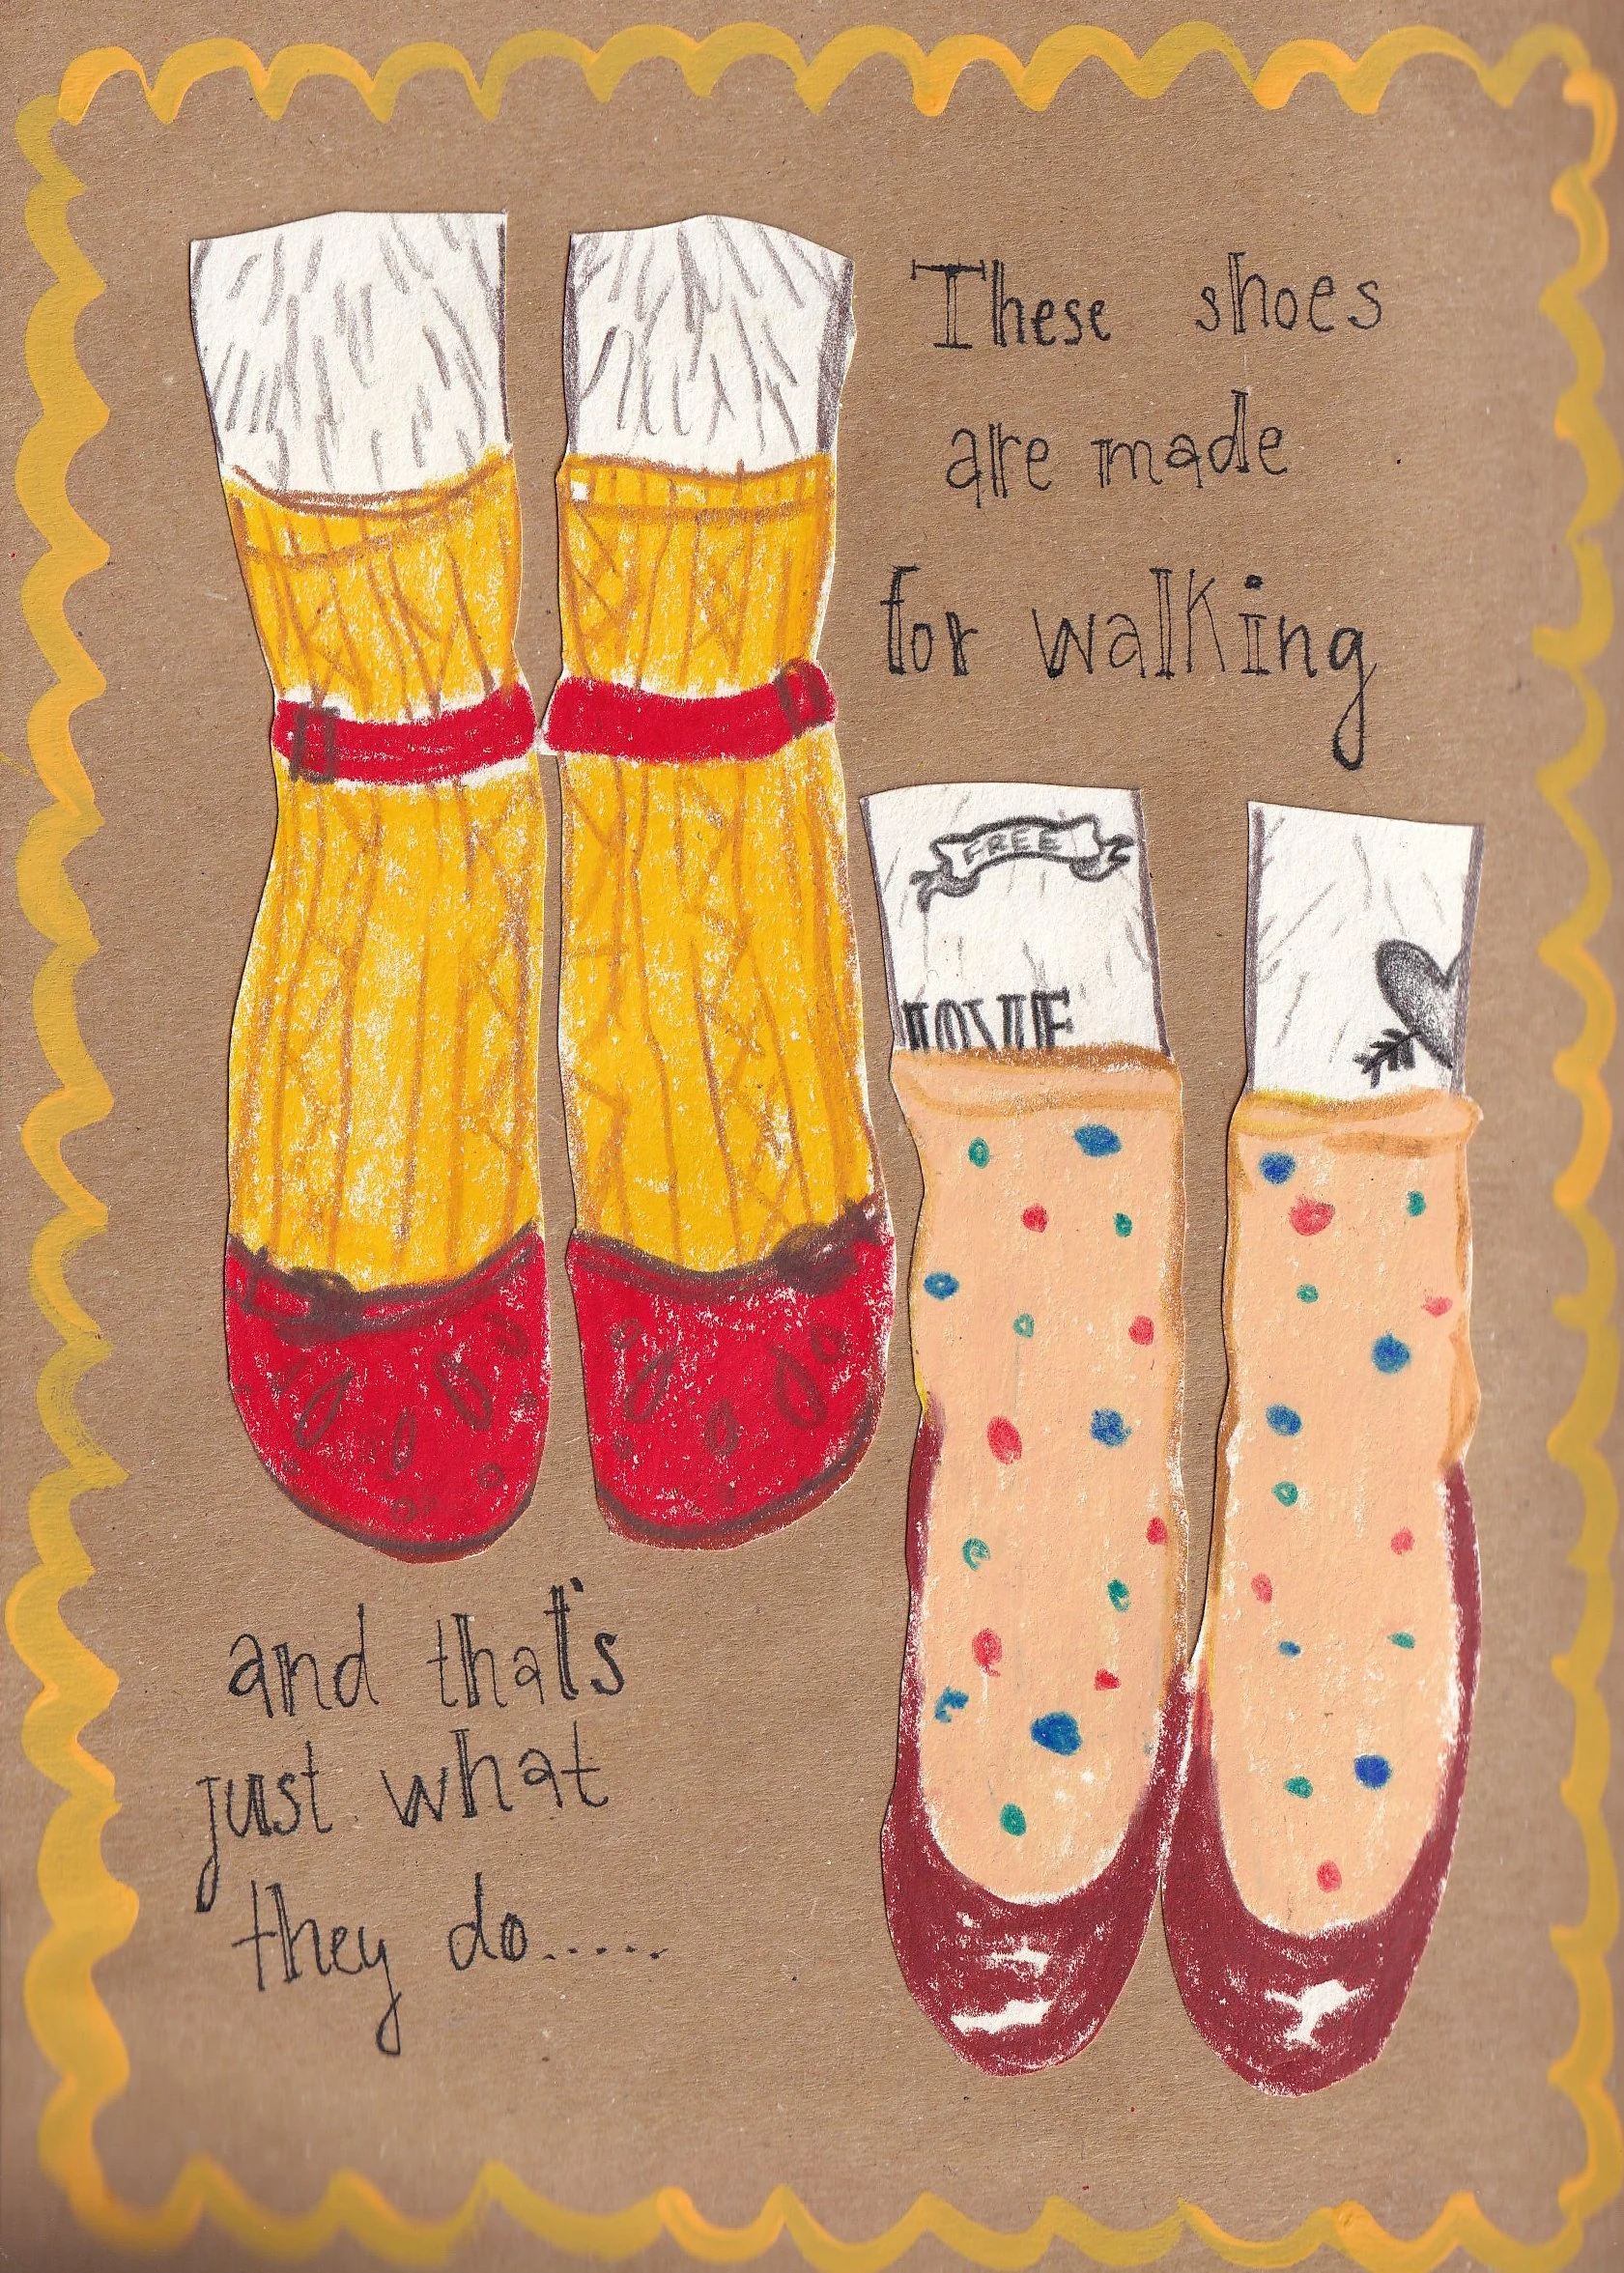 These shoes
are made
for walking
FREE
LOVE
and that's
just what
they do......